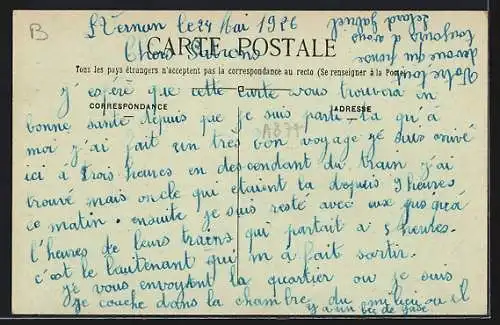 B
St Vernan le 24 Mai 1926
Chers Patrons
CARTE POSTALE
Tous les pays étrangers n'acceptent pas la correspondance au recto (Se renseigner à la Poste)
J'éspère que cette Carte vous trouvera en
CORRESPONDANCE
ADRESSE
bonne santé depuis que je suis parti quà
A877
moi j'ai fait un très bon voyage jé suis arrivé
ici à trois heures en descendant du train j'ai
trouvé mais oncle qui étaient la depuis 9 heures
ce matin. ensuite je suis resté avec eux jusqu'à
l'heures de leurs trains qui partait à 5 heures.
c'est le lieutenant qui m'a fait sortir.
je vous envoyent la quartier ou je suis
je couche dans la chambre du milieu ou il
y a un bec de gase
Votre tout
devoué qui pense
toujours à vous
Gabriel